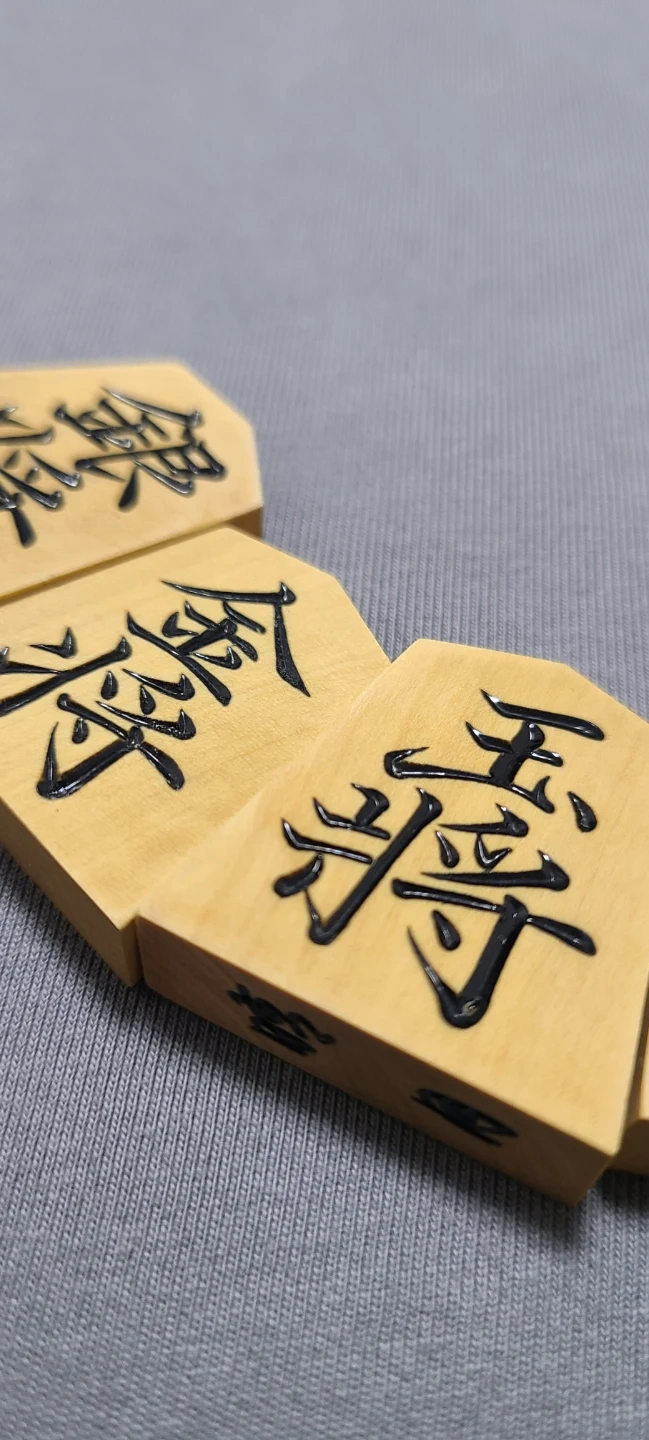 銀将
金将
玉将